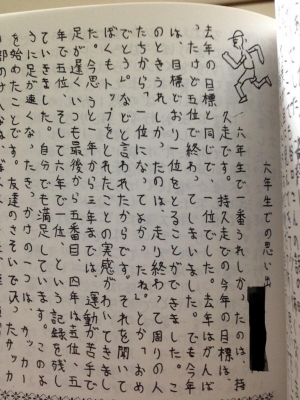 六年生での思い出
六年生で一番うれしかったのは、持
久走です。持久走での今年の目標は、
去年の目標と同じで、一位でした。去年はがんば
ったけど五位で終わってしまいました。でも今年
は、目標どおり一位をとることができました。こ
のときうれしかったのは、走り終わって周りの人
たちから、「一位になってよかったね。」とか「おめ
でとう。」などと言われたからです。それを聞いて
ぼくもトップをとれたことの実感がわいてきまし
た。今思うと一年から三年までは、運動が苦手で
足が遅くいつも最後から五番目、四年は五位、五
年で五位、そして六年で一位、という記録を残し
ていきました。自分でも満足しています。このよ
うに足が速くなったきっかけの一つは、サッカー
を始めたことです。友達のさそいで入ったサッカー